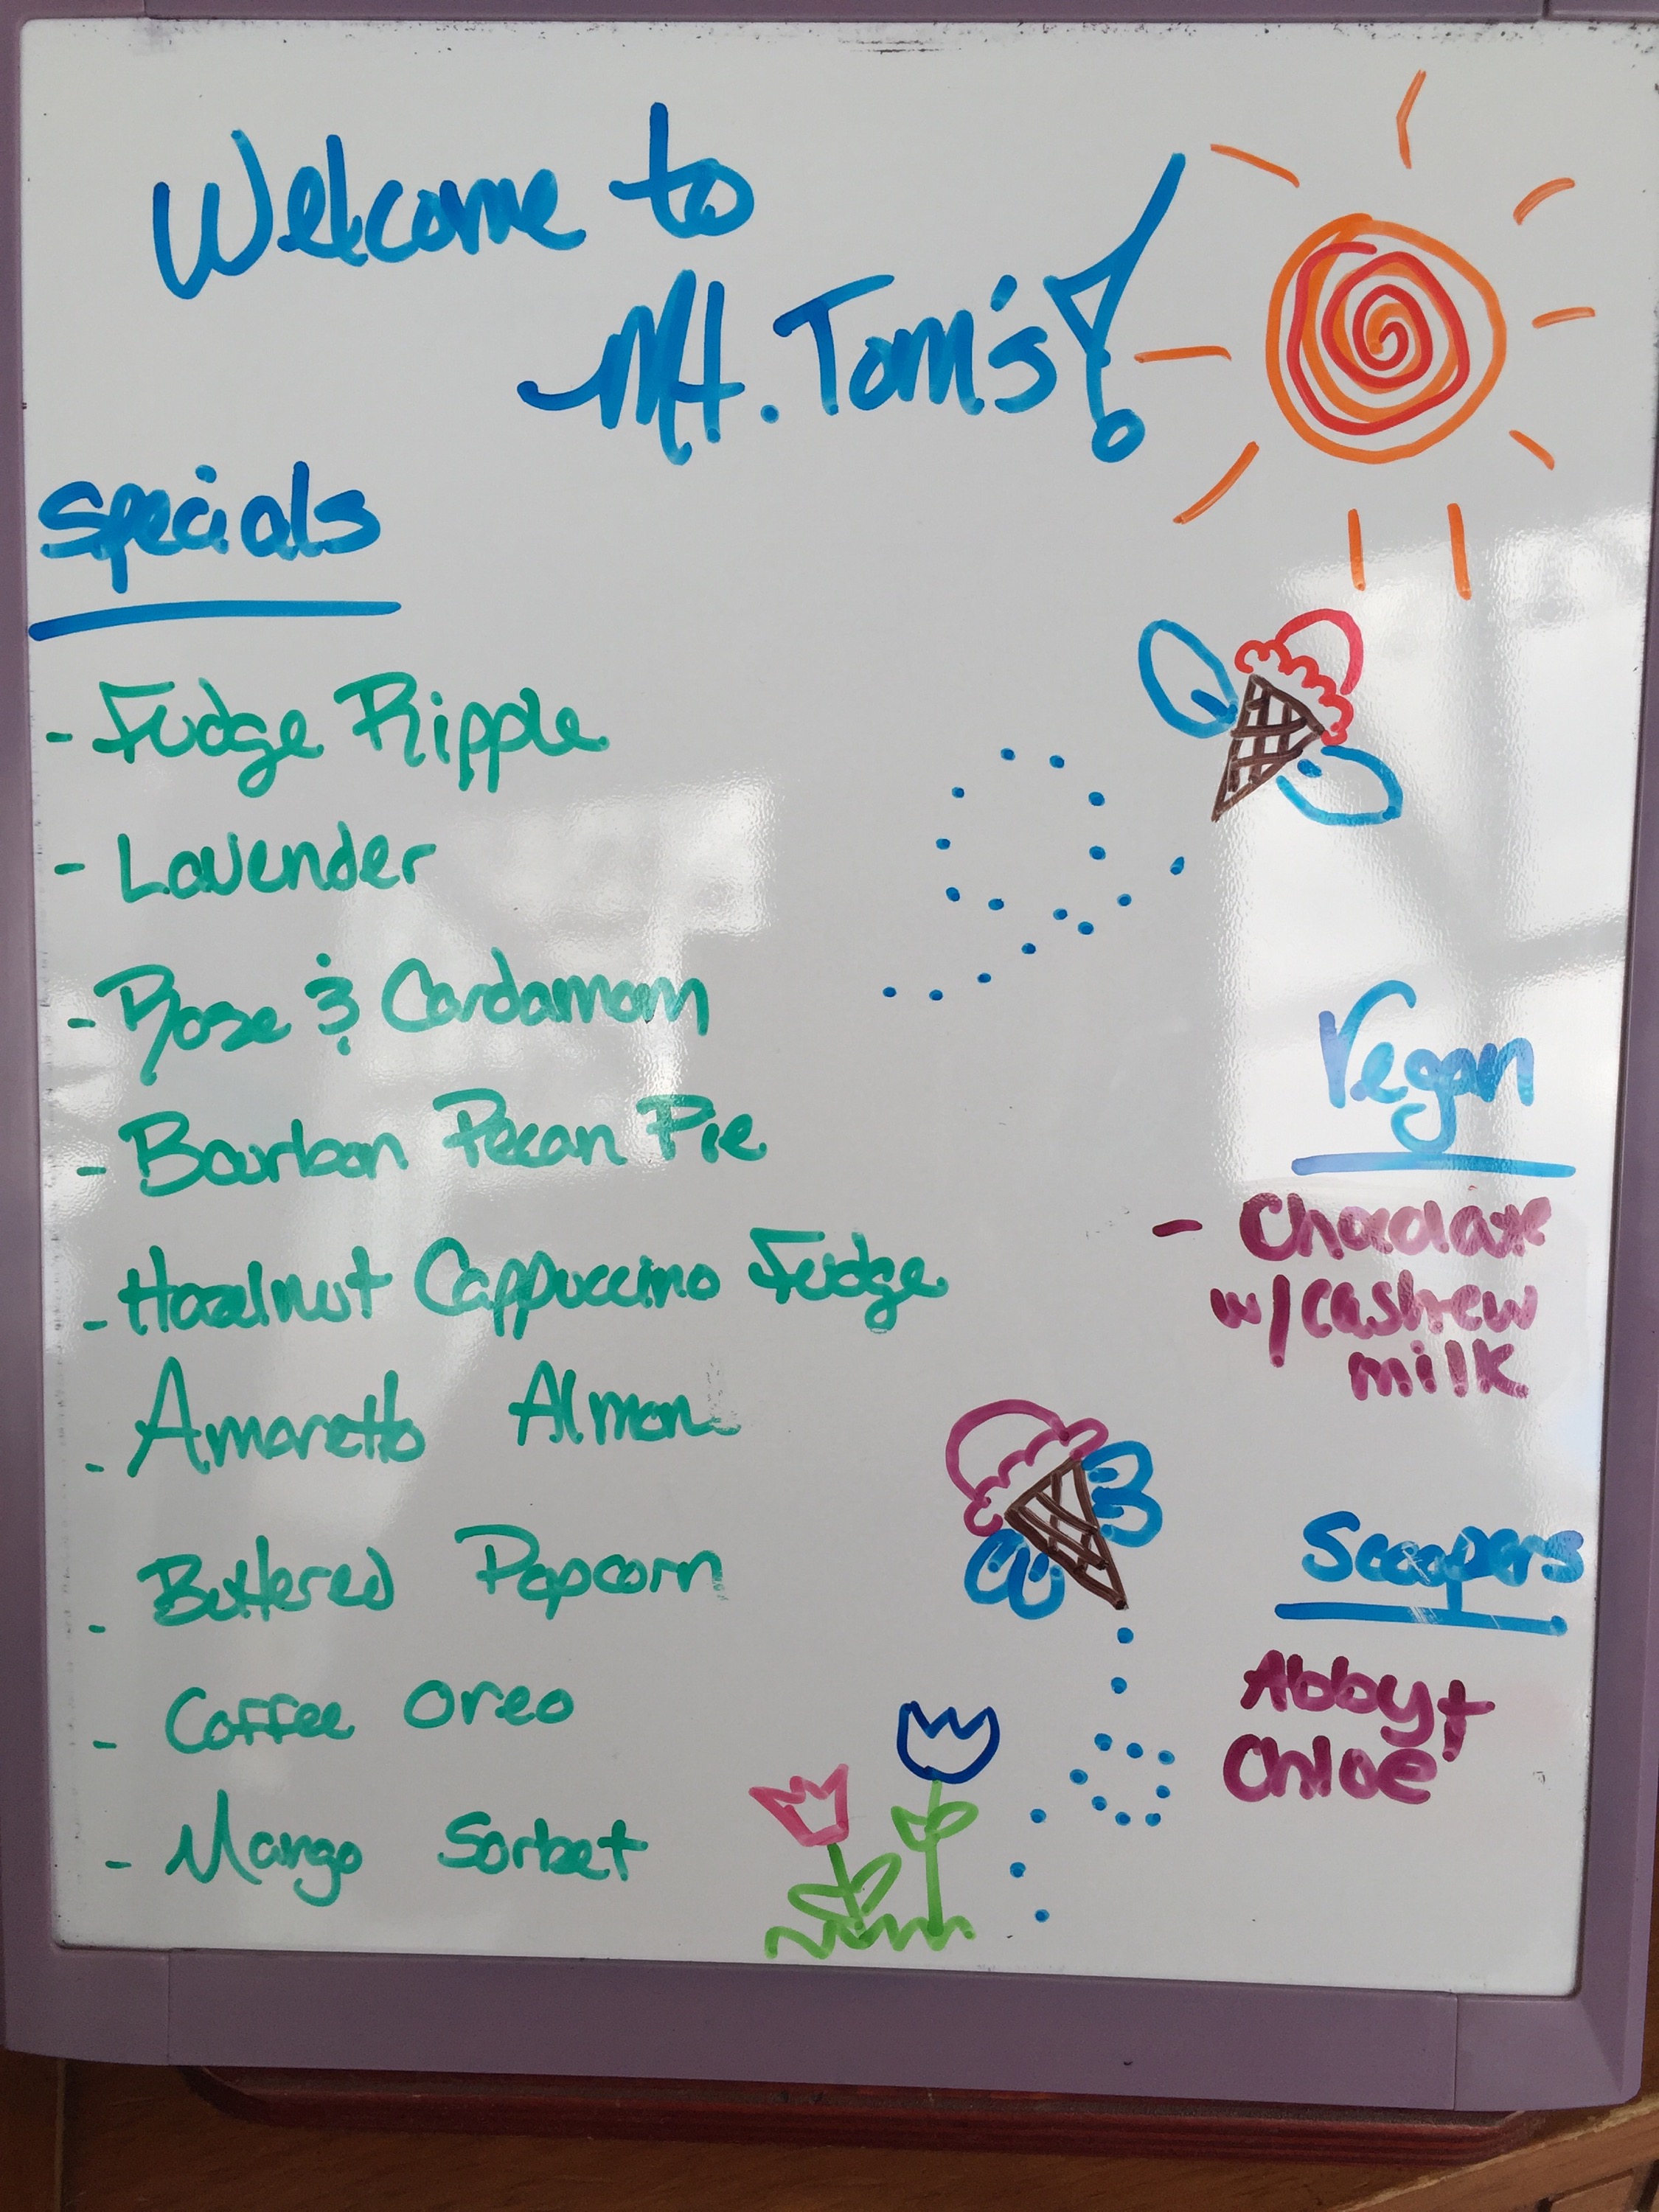 Welcome to
Mt. Tom's!
Specials
- Fudge Ripple
- Lavender
- Rose & Cardamom
- Bourbon Pecan Pie
- Hazelnut Cappuccino Fudge
- Amaretto Almon
- Buttered Popcorn
- Coffee Oreo
- Mango Sorbet
Vegan
- Chocolate
w/ cashew
milk
Scoopers
Abby +
Chloe